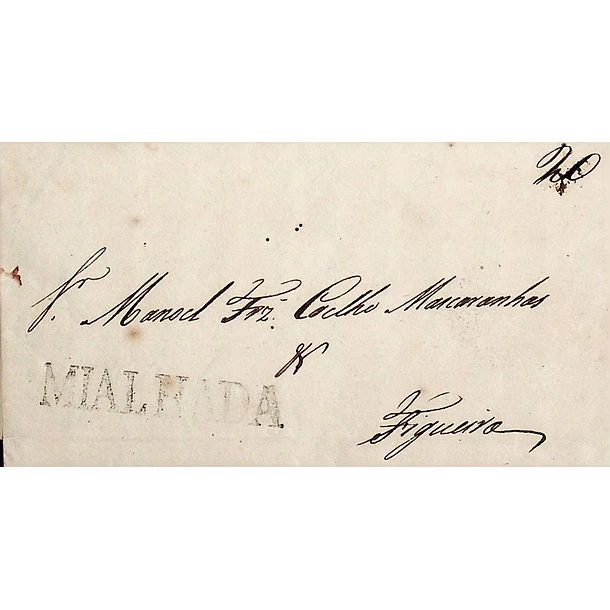 Sr. Manoel Frz. Coelho Mascaranhas
&
MIALHADA
Figueira